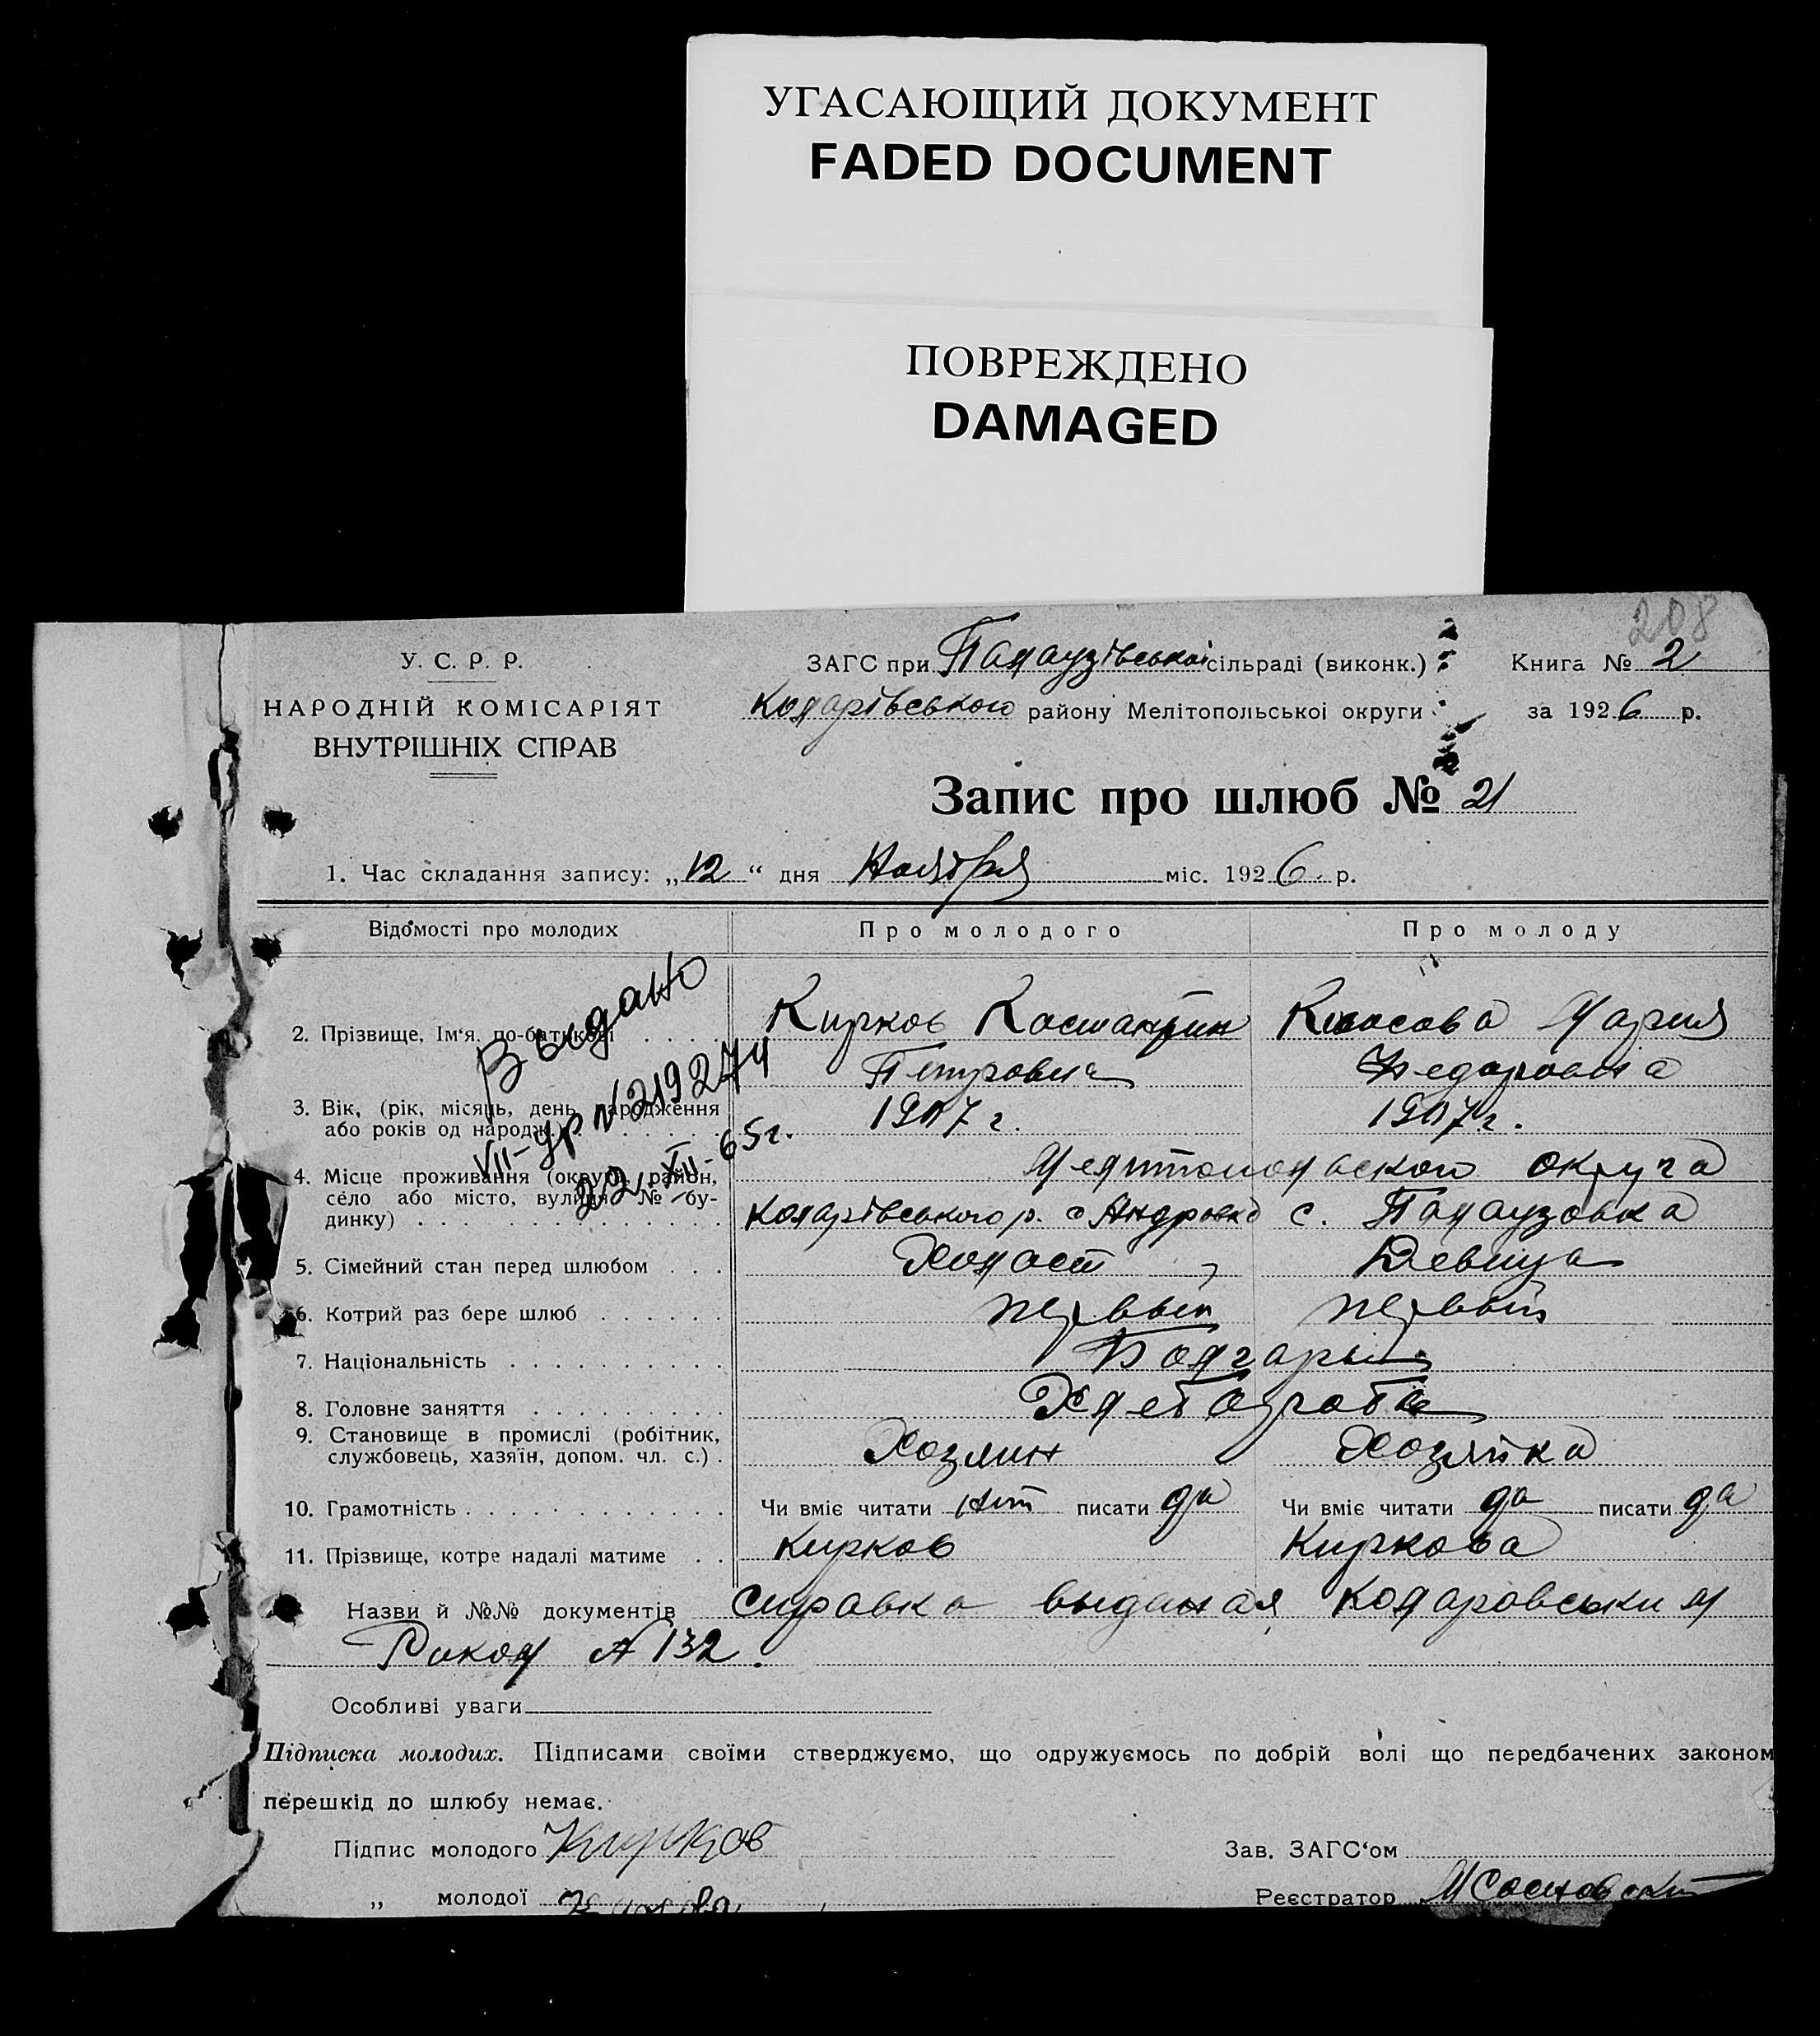 УГАСАЮЩИЙ ДОКУМЕНТ
FADED DOCUMENT
ПОВРЕЖДЕНО
DAMAGED
208
У. С. Р. Р.
НАРОДНІЙ КОМІСАРІЯТ
ВНУТРІШНІХ СПРАВ
ЗАГС при Палаузівської сільраді (виконк.)
Коларівського району Мелітопольської округи
Книга № 2
за 1926 р.
Запис про шлюб № 21
1. Час складання запису: „12“ дня Ноября міс. 1926 р.
Відомості про молодих Про молодого Про молоду
Выдано
VII-УР №219274
22-XII-65г.
2. Прізвище, Ім'я, по-батькові Кирков Костантин Мария
Петрович Федоровна
3. Вік, (рік, місяць, день народження
або років од народж.) 1907 г. 1907 г.
4. Місце проживання (округа, район, Мелитополской округа
село або місто, вулиця, № бу-
динку) Коларівського р. с Андровка с. Палаузовка
5. Сімейний стан перед шлюбом Холост Девица
6. Котрий раз бере шлюб первый первый
7. Національність Болгары
8. Головне заняття Хлебороб
9. Становище в промислі (робітник,
службовець, хазяїн, допом. чл. с.) Хозяин Хозяйка
10. Грамотність Чи вміє читати писати да Чи вміє читати да писати да
11. Прізвище, котре надалі матиме Кирков Киркова
Назви й №№ документів справка выданая Коларовським
Риком № 132.
Особливі уваги
Підписка молодих. Підписами своїми стверджуємо, що одружуємось по добрій волі що передбачених законом
перешкід до шлюбу немає.
Підпис молодого Кирков Зав. ЗАГС'ом
„ молодої Реєстратор М Сосновский